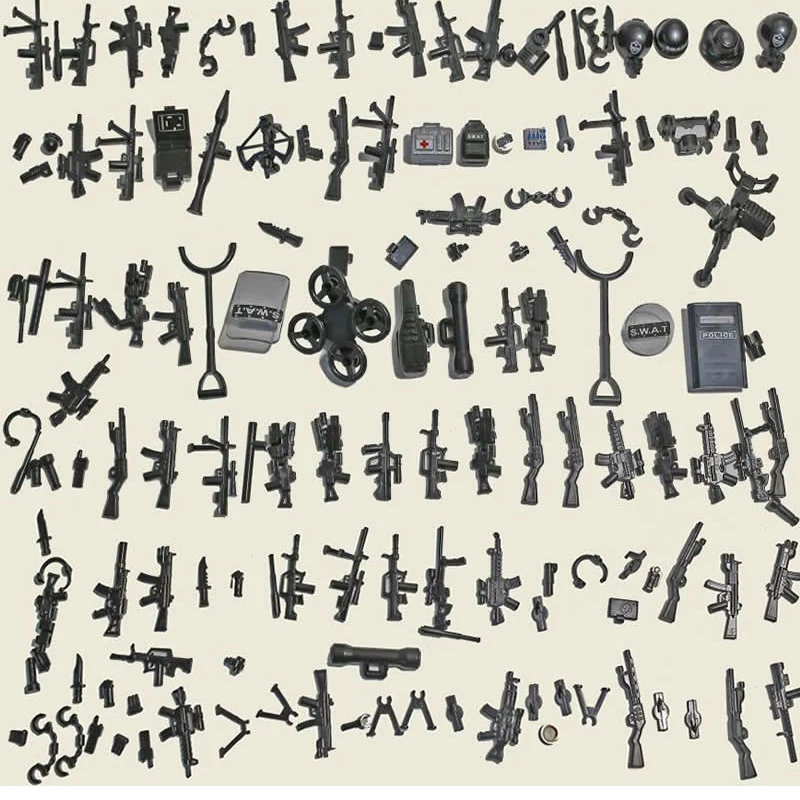 S.W.A.T
S.W.A.T
S.W.A.T
POLICE